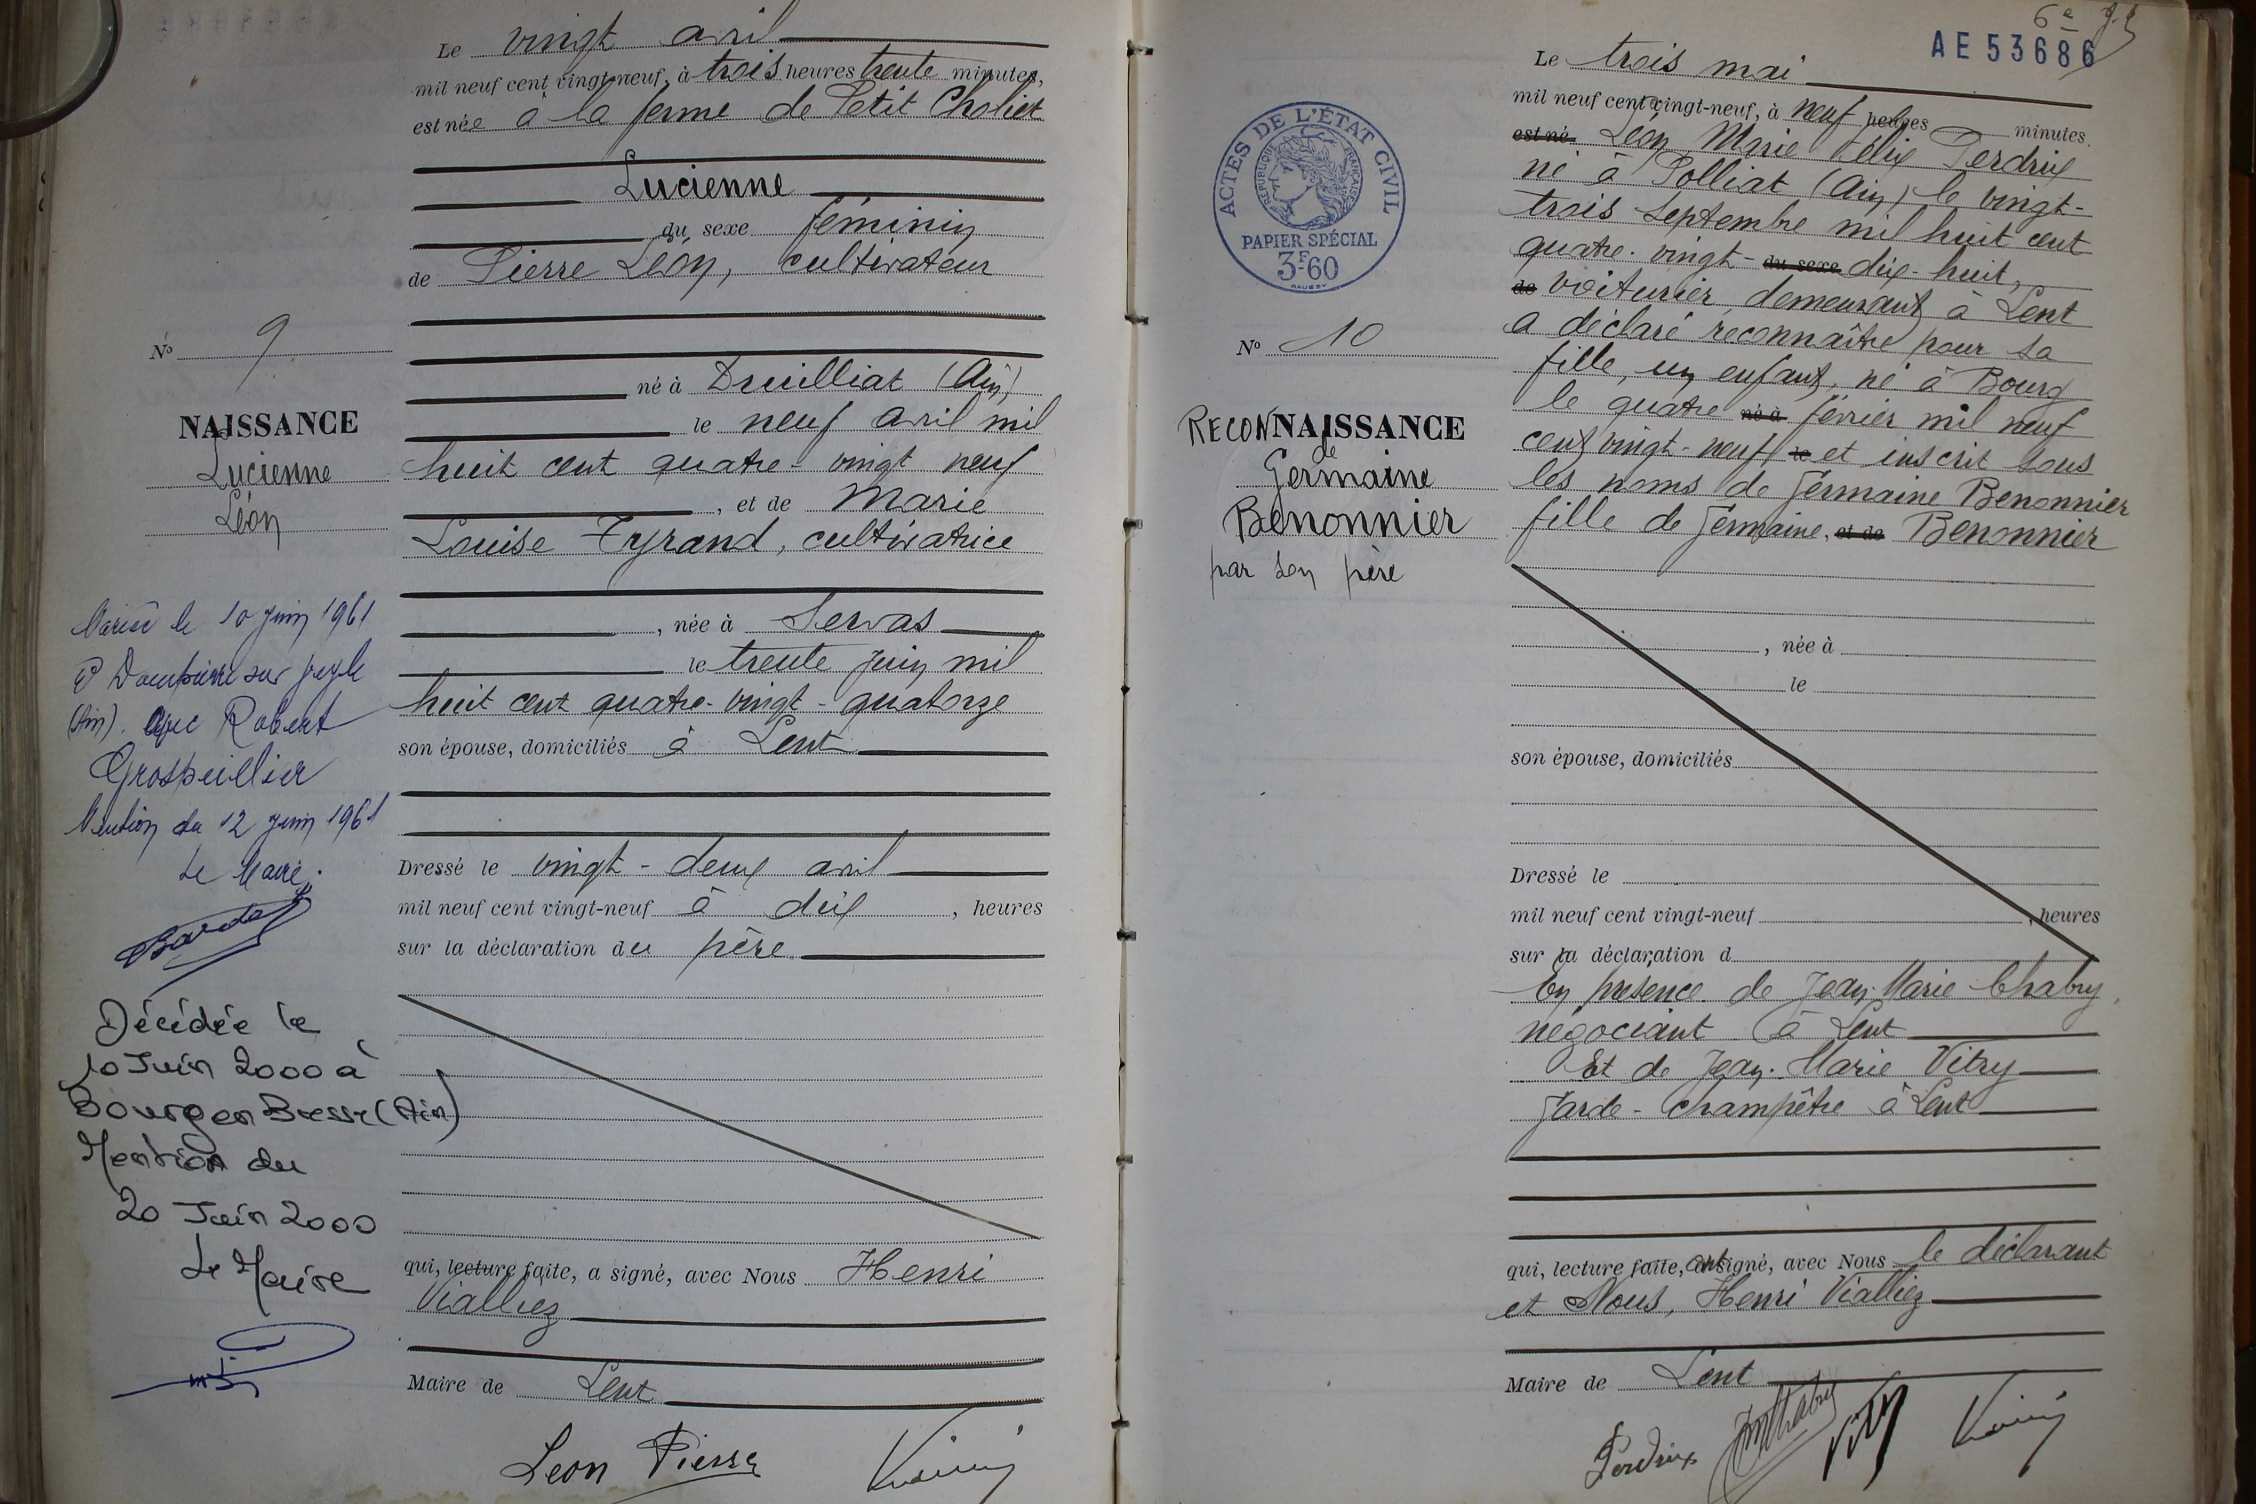 Le vingt avril
mil neuf cent vingt-neuf, à trois heures trente minutes,
est née à la ferme de Petit Choliet
Lucienne
du sexe féminin
de Pierre Léon, cultivateur
né à Druilliat (Ain)
le neuf avril mil
huit cent quatre-vingt neuf
, et de Marie
Louise Tyrand, cultivatrice
, née à Servas
le trente juin mil
huit cent quatre-vingt-quatorze
son épouse, domiciliés à Lent
Dressé le vingt-deux avril
mil neuf cent vingt-neuf à dix , heures
sur la déclaration du père
qui, lecture faite, a signé, avec Nous Henri
Vialliez
Maire de Lent
Leon Pierre
No 9
NAISSANCE
Lucienne
Léon
Mariée le 10 juin 1961
à Dompierre sur Veyle
(Ain). avec Robert
Grospellier
Mention du 12 juin 1961
Le Maire.
Décédée le
10 Juin 2000 à
Bourg en Bresse (Ain)
Mention du
20 Juin 2000
Le Maire
6e
AE53686
ACTES DE L'ÉTAT CIVIL
RÉPUBLIQUE FRANÇAISE
PAPIER SPÉCIAL
3F60
No 10
RECONNAISSANCE
de
Germaine
Benonnier
par son père
Le trois mai
mil neuf cent vingt-neuf, à neuf heures minutes.
est né Léon Marie Félix Perdrix
né à Polliat (Ain) le vingt-
trois Septembre mil huit cent
quatre-vingt-du sexe dix-huit,
de voiturier, demeurant à Lent
a déclaré reconnaître pour sa
fille, un enfant, né à Bourg
le quatre né à février mil neuf
cent vingt-neuf, le et inscrit sous
les noms de Germaine Benonnier
fille de Germaine, et de Benonnier
, née à
le
son épouse, domiciliés
Dressé le
mil neuf cent vingt-neuf , heures
sur la déclaration d
En présence de Jean-Marie Chabry,
négociant à Lent
Et de Jean-Marie Vitry
Garde-champêtre à Lent
qui, lecture faite, ont signé, avec Nous le déclarant
et Nous, Henri Vialliez
Maire de Lent
Perdrix
Vitry